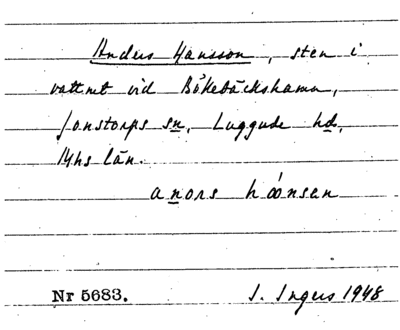 Anders Hansson, sten i
vattnet vid Bökebäckshamn,
Jonstorps sn, Luggude hd,
Mhs län.
anors hóonsan
Nr 5683. I. Ingers 1948